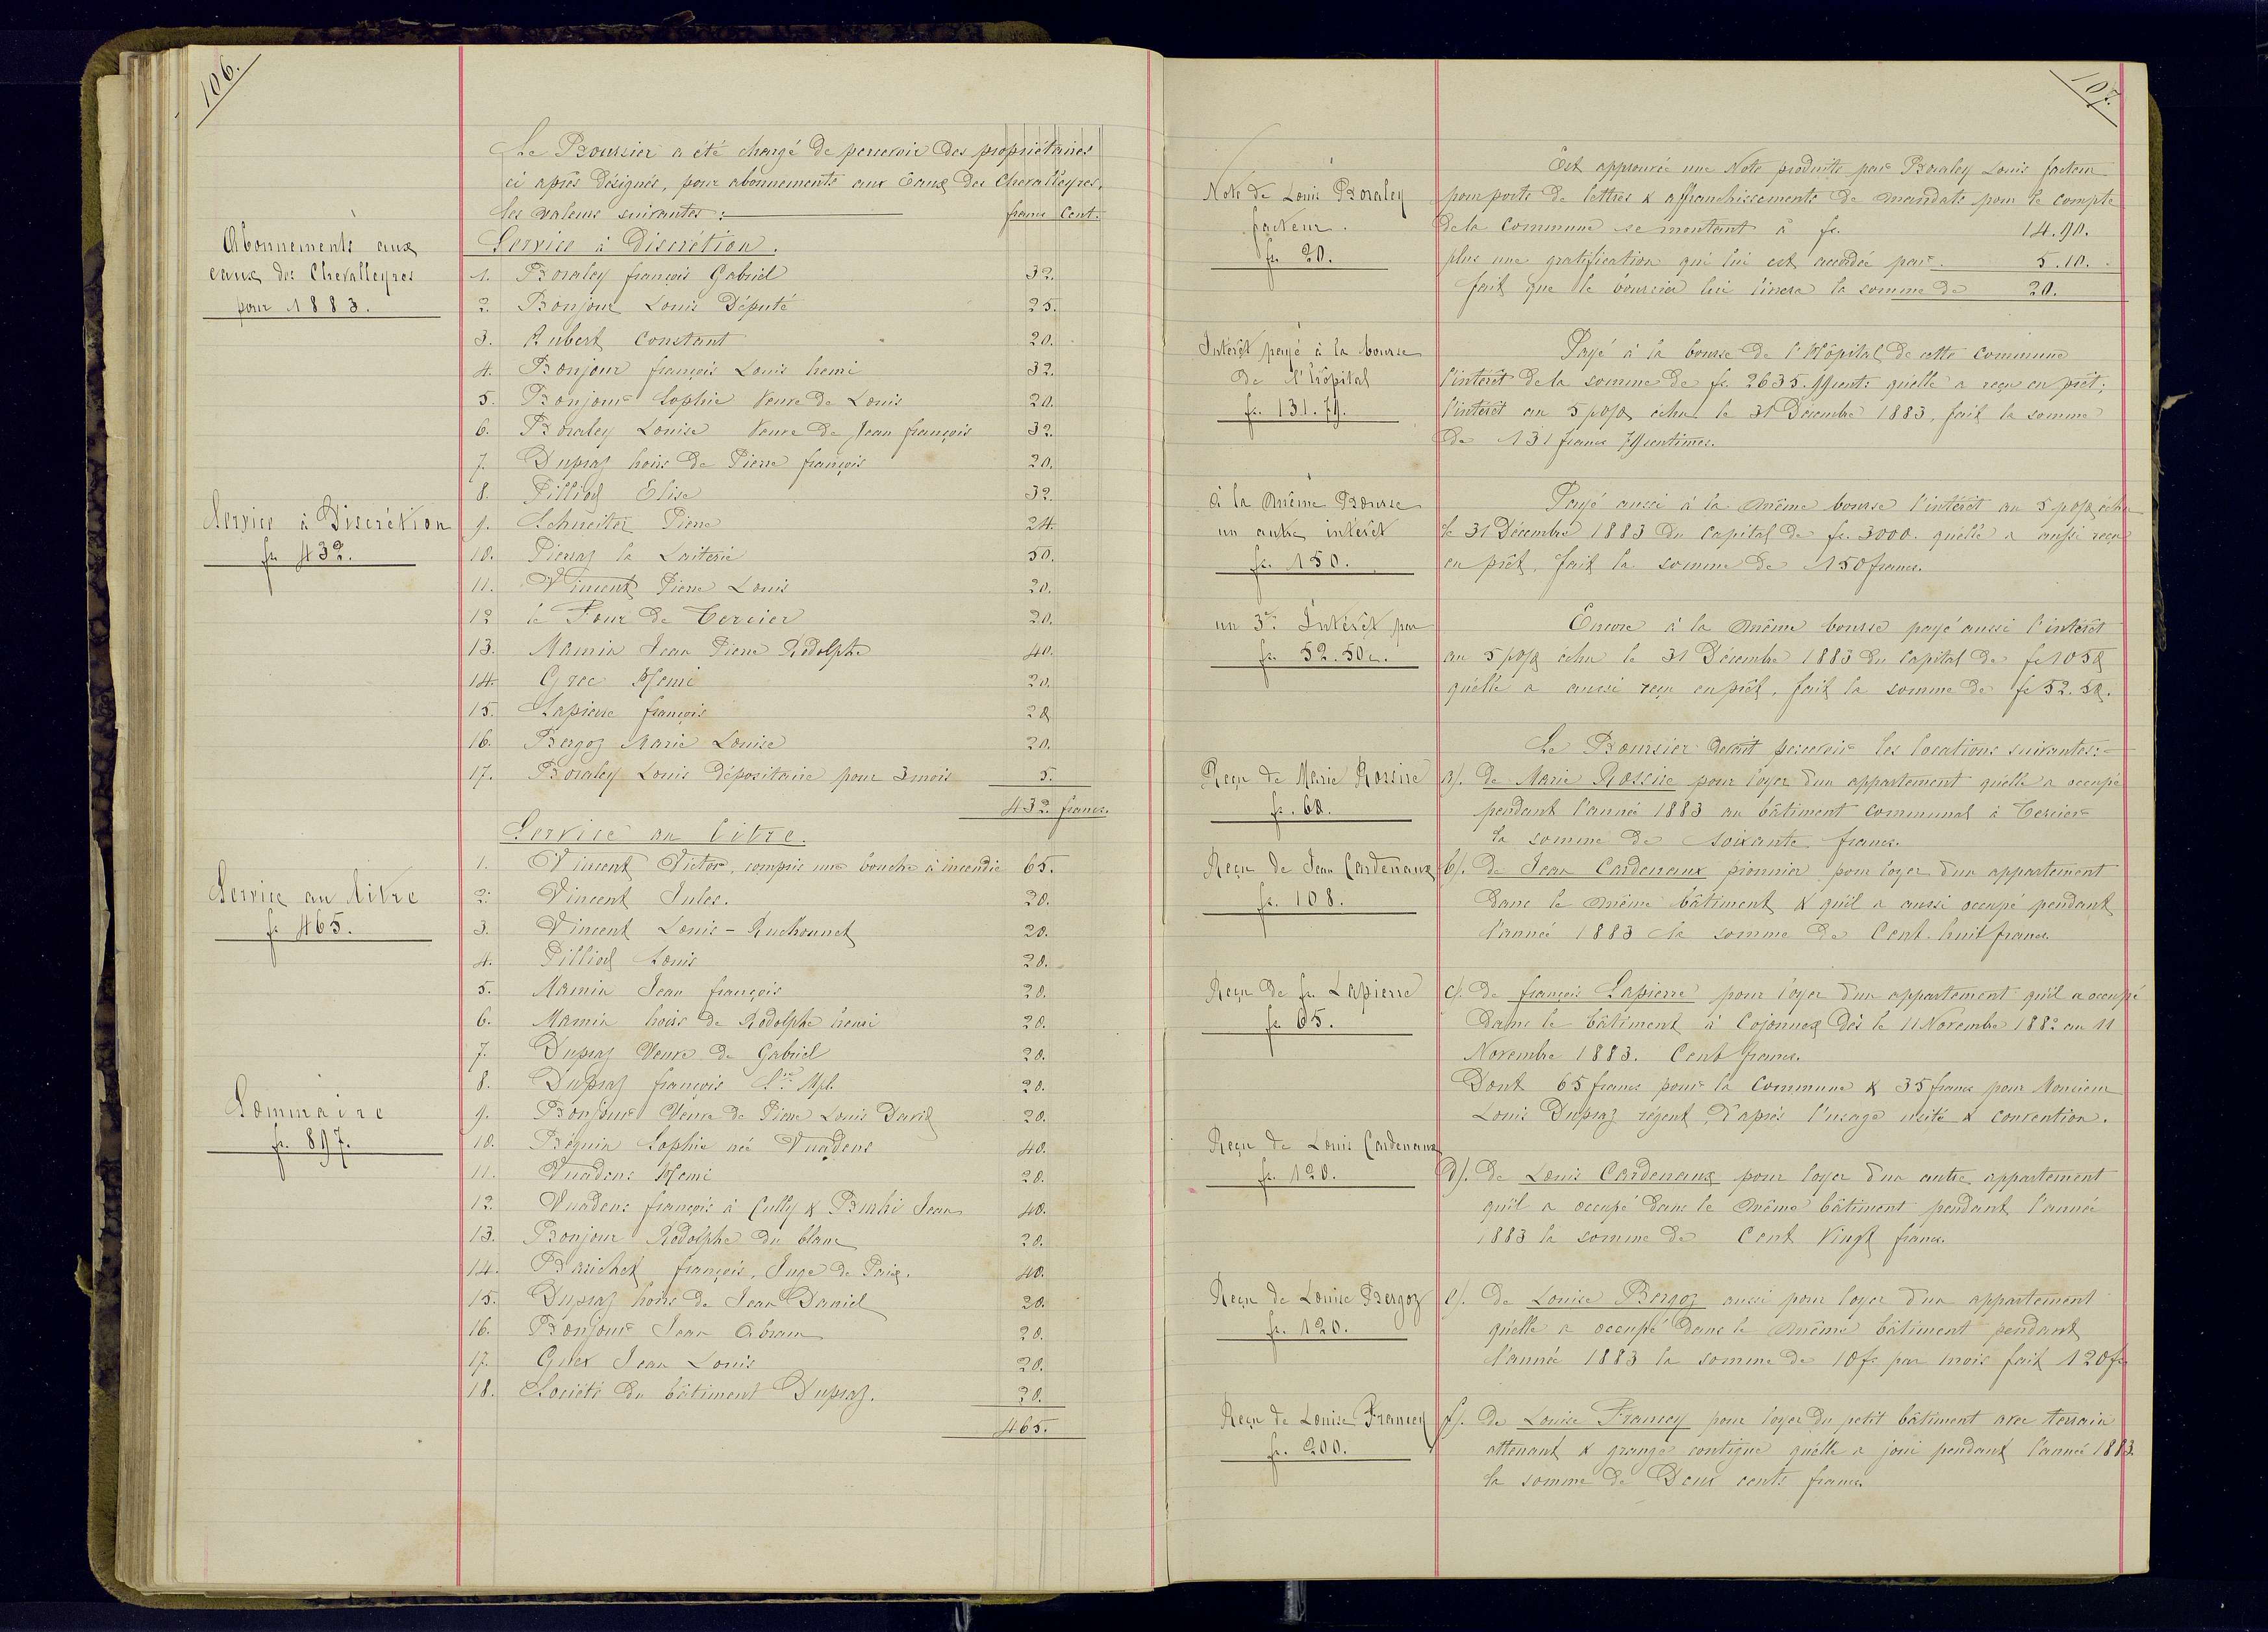 106.
Le Boursier a été chargé de percevoir des propriétaires
ci après désignés, pour abonnements aux Eaux des Chevalleyres,
les valeurs suivantes : francs Cent.
Abonnements aux
eaux des Chevalleyres
pour 1883.
Service à Discrétion.
1. Boraley françois Gabriel 32.
2. Bonjour Louis Député 25.
3. Aubert Constant 20.
4. Bonjour françois Louis henri 32.
5. Bonjour Sophie Veuve de Louis 20.
6. Boraley Louise Veuve de Jean françois 32.
7. Dupraz hoirs de Pierre françois 20.
8. Pilliod Elise 32.
Service à Discrétion
fr. 432.
9. Schneiter Pierre 24.
10. Pierraz la Laiterie 50.
11. Vincent Pierre Louis 20.
12 le Four de Cercier 20.
13. Mamin Jean Pierre Rodolphe 40.
14. Grec Henri 20.
15. Lapierre françois 20
16. Bergoz Marie Louise 20.
17. Boraley Louis dépositaire pour 3 mois 5.
432 francs.
Service au litre.
1. Vincent Victor, compris une bouche à incendie 65.
2. Vincent Jules. 20.
Service au litre
fr. 465.
3. Vincent Louis - Ruchonnet 20.
4. Pilliod Louis 20.
5. Mamin Jean françois 20.
6. Mamin hoirs de Rodolphe henri 20.
7. Dupraz Veuve de Gabriel 20.
8. Dupraz françois 20.
Sommaire
fr. 897.
9. Bonjour Veuve de Pierre Louis David 20.
10. Beguin Sophie née Vuadens 40.
11. Vuadens Henri 20.
12. Vuadens françois à Cully & Jean 40.
13. Bonjour Rodolphe du blanc 20.
14. françois, Juge de Paix. 40.
15. Dupraz hoirs de Jean Daniel 20.
16. Bonjour Jean Abram 20.
17. Guex Jean Louis 20.
18. Société du bâtiment Dupraz. 20.
465.
107.
Note de Louis Boraley
facteur.
fr. 20.
Est approuvée une Note produite par Boraley Louis facteur
pour ports de lettres & affranchissements de mandats pour le compte
de la Commune se montant à fr. 14.90.
plus une gratification qui lui est accordée par 5.10.
fait que le boursier lui livrera la somme de 20.
Intérêt payé à la bourse
de l'hôpital
fr. 131.79.
Payé à la bourse de l'Hôpital de cette Commune
l'intérêt de la somme de fr. 2635. qu'elle a reçu en prêt;
l'intérêt au 5 p% échu le 31 Décembre 1883, fait la somme
de 131 francs 79 centimes.
à la même Bourse
un autre intérêt
fr. 150.
Payé aussi à la même bourse l'intérêt au 5 p% échu
le 31 Décembre 1883 du Capital de fr. 3000. qu'elle a aussi reçu
en prêt, fait la somme de 150 francs.
un 3e. Intérêt par
fr. 52.50c.
Encore à la même bourse payé aussi l'intérêt
au 5 p% échu le 31 Décembre 1883 du Capital de fr 1050
qu'elle a aussi reçu en prêt, fait la somme de fr 52.50.
Le Boursier devait percevoir les locations suivantes:
Reçu de Marie Rossire
fr. 60.
a/. de Marie Rossire pour loyer d'un appartement qu'elle a occupé
pendant l'année 1883 au bâtiment communal à Cercier
la somme de soixante francs.
Reçu de Jean Cardenaux
fr. 108.
b/. de Jean Cardenaux pionnier pour loyer d'un appartement
dans le même bâtiment & qu'il a aussi occupé pendant
l'année 1883 la somme de Cent huit francs.
Reçu de fr. Lapierre
fr 65.
c/. de françois Lapierre pour loyer d'un appartement qu'il a occupé
dans le bâtiment à Cojonnex dès le 11 Novembre 1882 au 11
Novembre 1883. Cent francs.
Dont 65 francs pour la Commune & 35 francs pour Monsieur
Louis Dupraz régent, d'après l'usage usité & convention.
Reçu de Louis Cardenaux
fr. 120.
d/. de Louis Cardenaux pour loyer d'un autre appartement
qu'il a occupé dans le même bâtiment pendant l'année
1883 la somme de Cent Vingt francs.
Reçu de Louise Bergoz
fr. 120.
e/. de Louise Bergoz aussi pour loyer d'un appartement
qu'elle a occupé dans le même bâtiment pendant
l'année 1883 la somme de 10 fr par mois fait 120 fr
Reçu de Louise Francey
fr. 200.
f/. de Louise Francey pour loyer du petit bâtiment avec terrain
attenant & grange contigue qu'elle a joui pendant l'année 1883.
la somme de Deux cents francs.